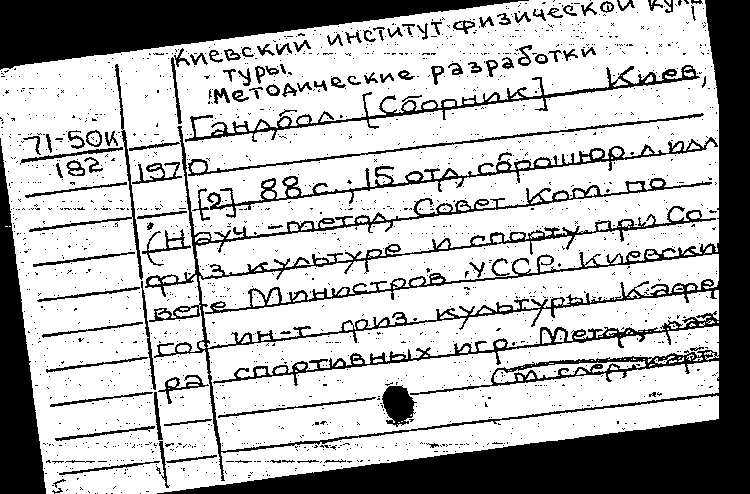 Киевский институт физической куль
туры.
Методические разработки
Гандбол. [Сборник] Киев,
71-50к
182
1970.
[2], 88 с.; 15 отд. сброшюр. л. илл
(Науч.-метод. Совет Ком. по
физ. культуре и спорту при Со-
вете Министров УССР. Киевский
гос ин-т физ. культуры. Кафед
ра спортивных игр. Метод. раз
См. след. карт